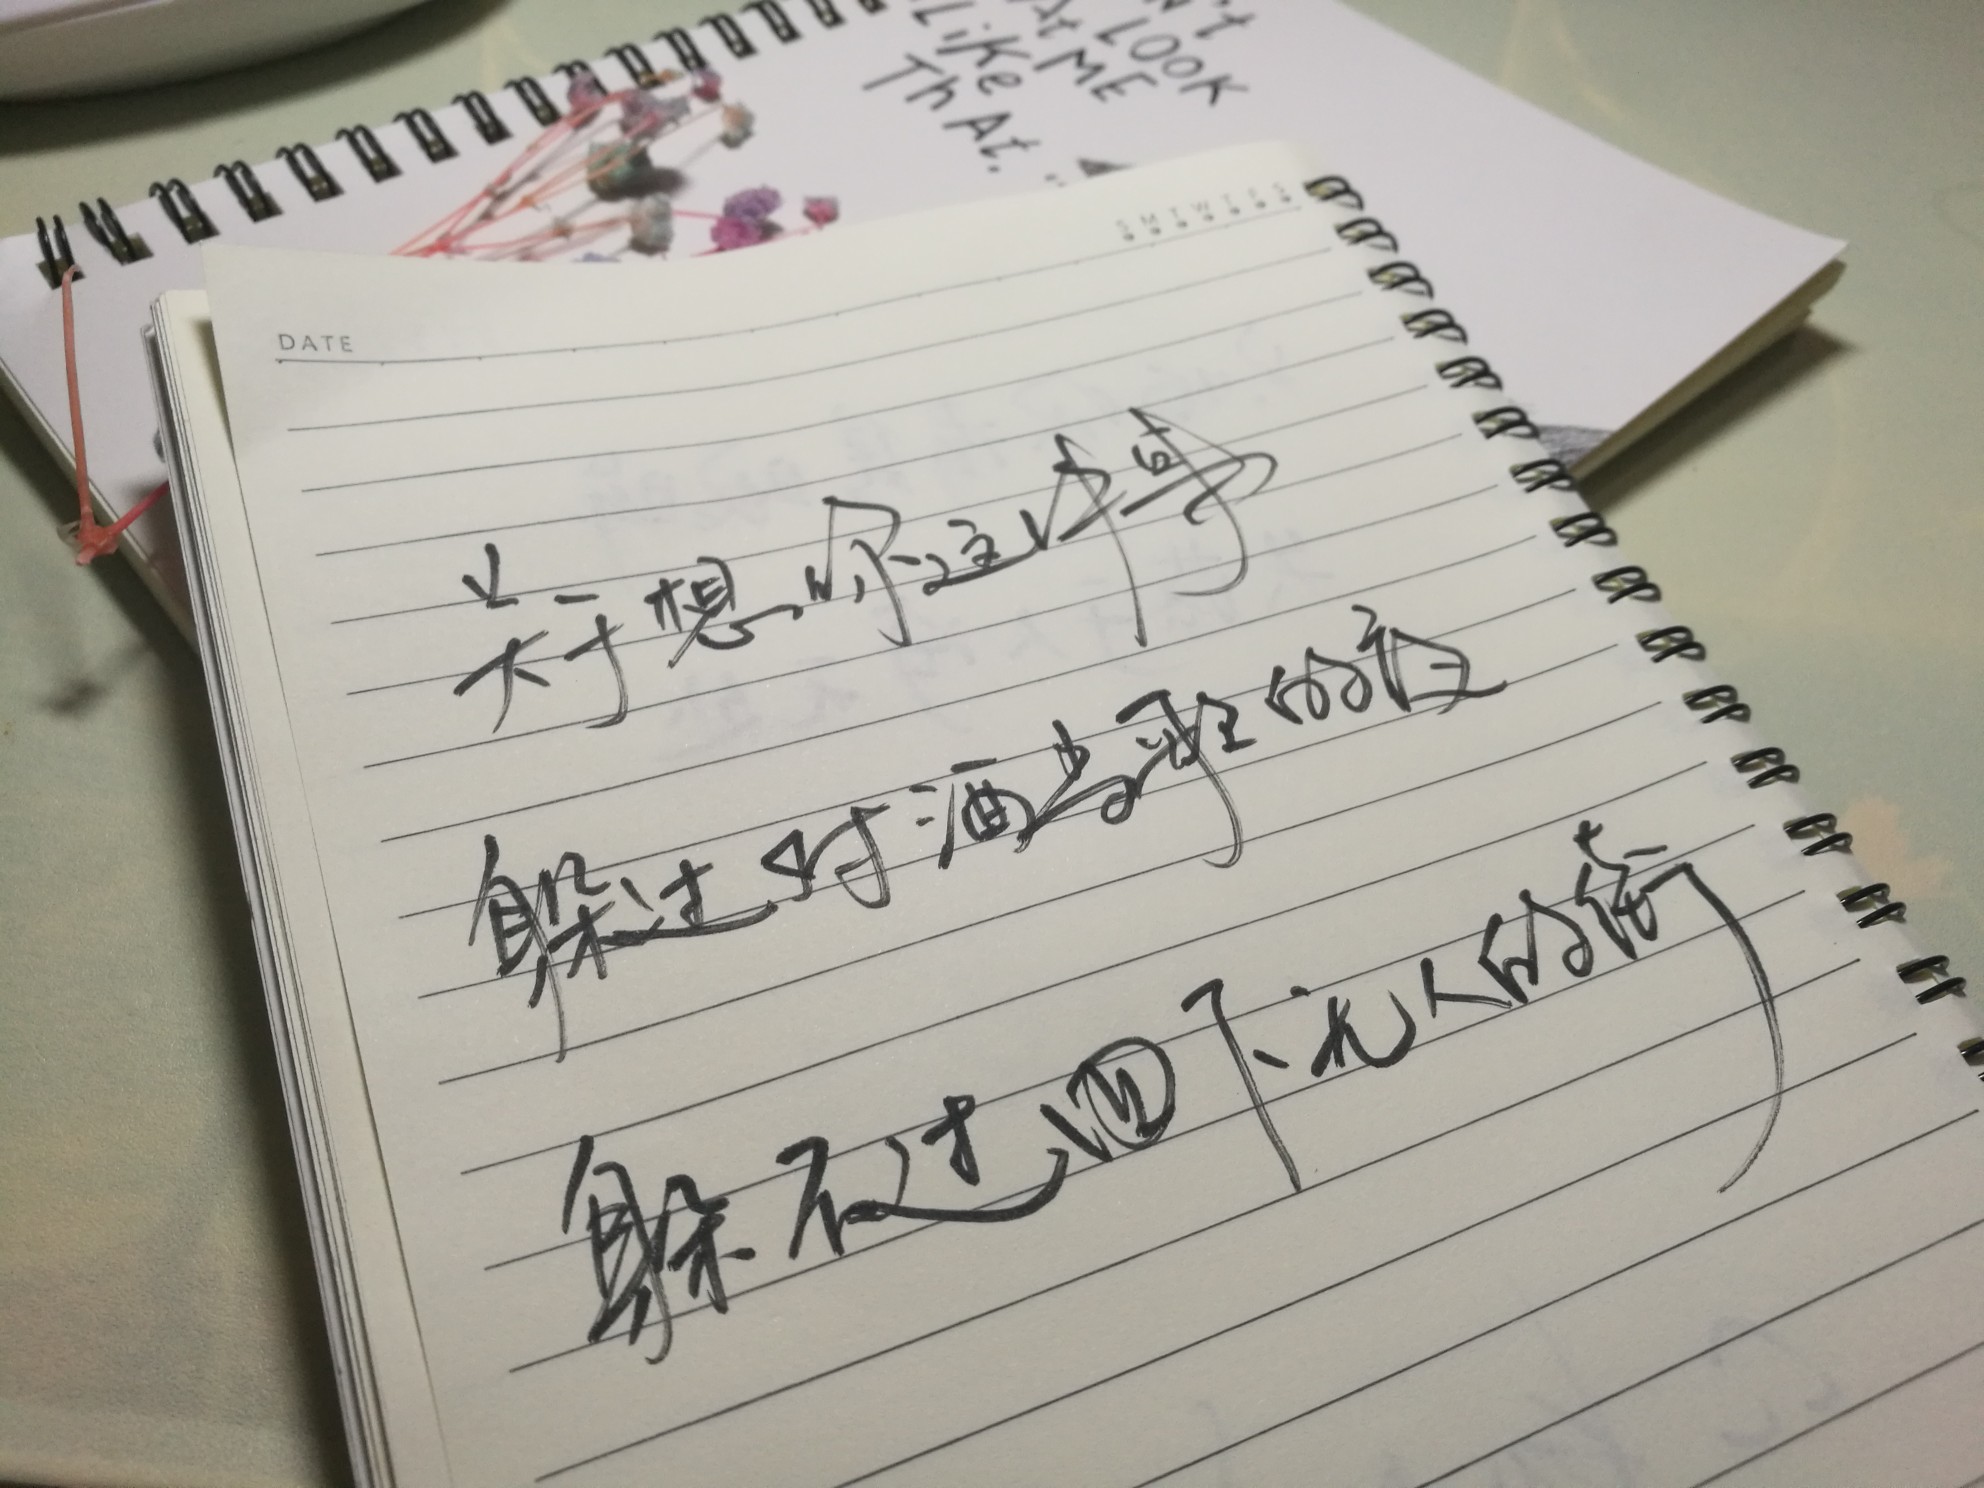 n't
LOOK
At ME
Like
ThAt.
S M T W T F S
DATE
关于想你这件事
躲过对酒当歌的夜
躲不过四下无人的街